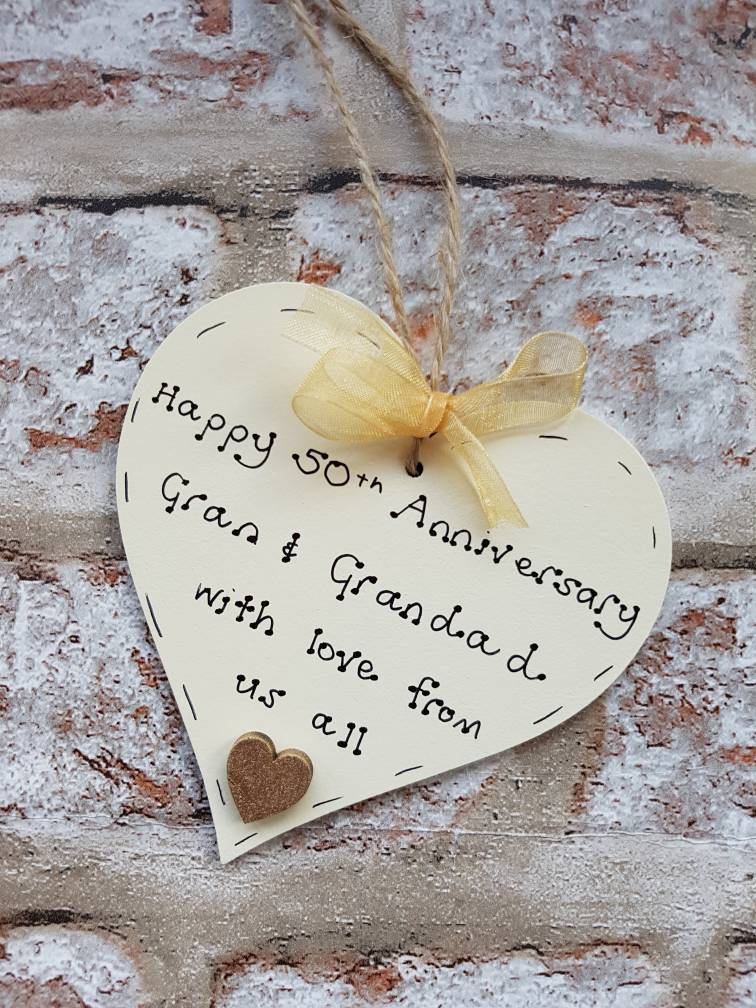 Happy 50th Anniversary
Gran & Grandad
with love from
us all